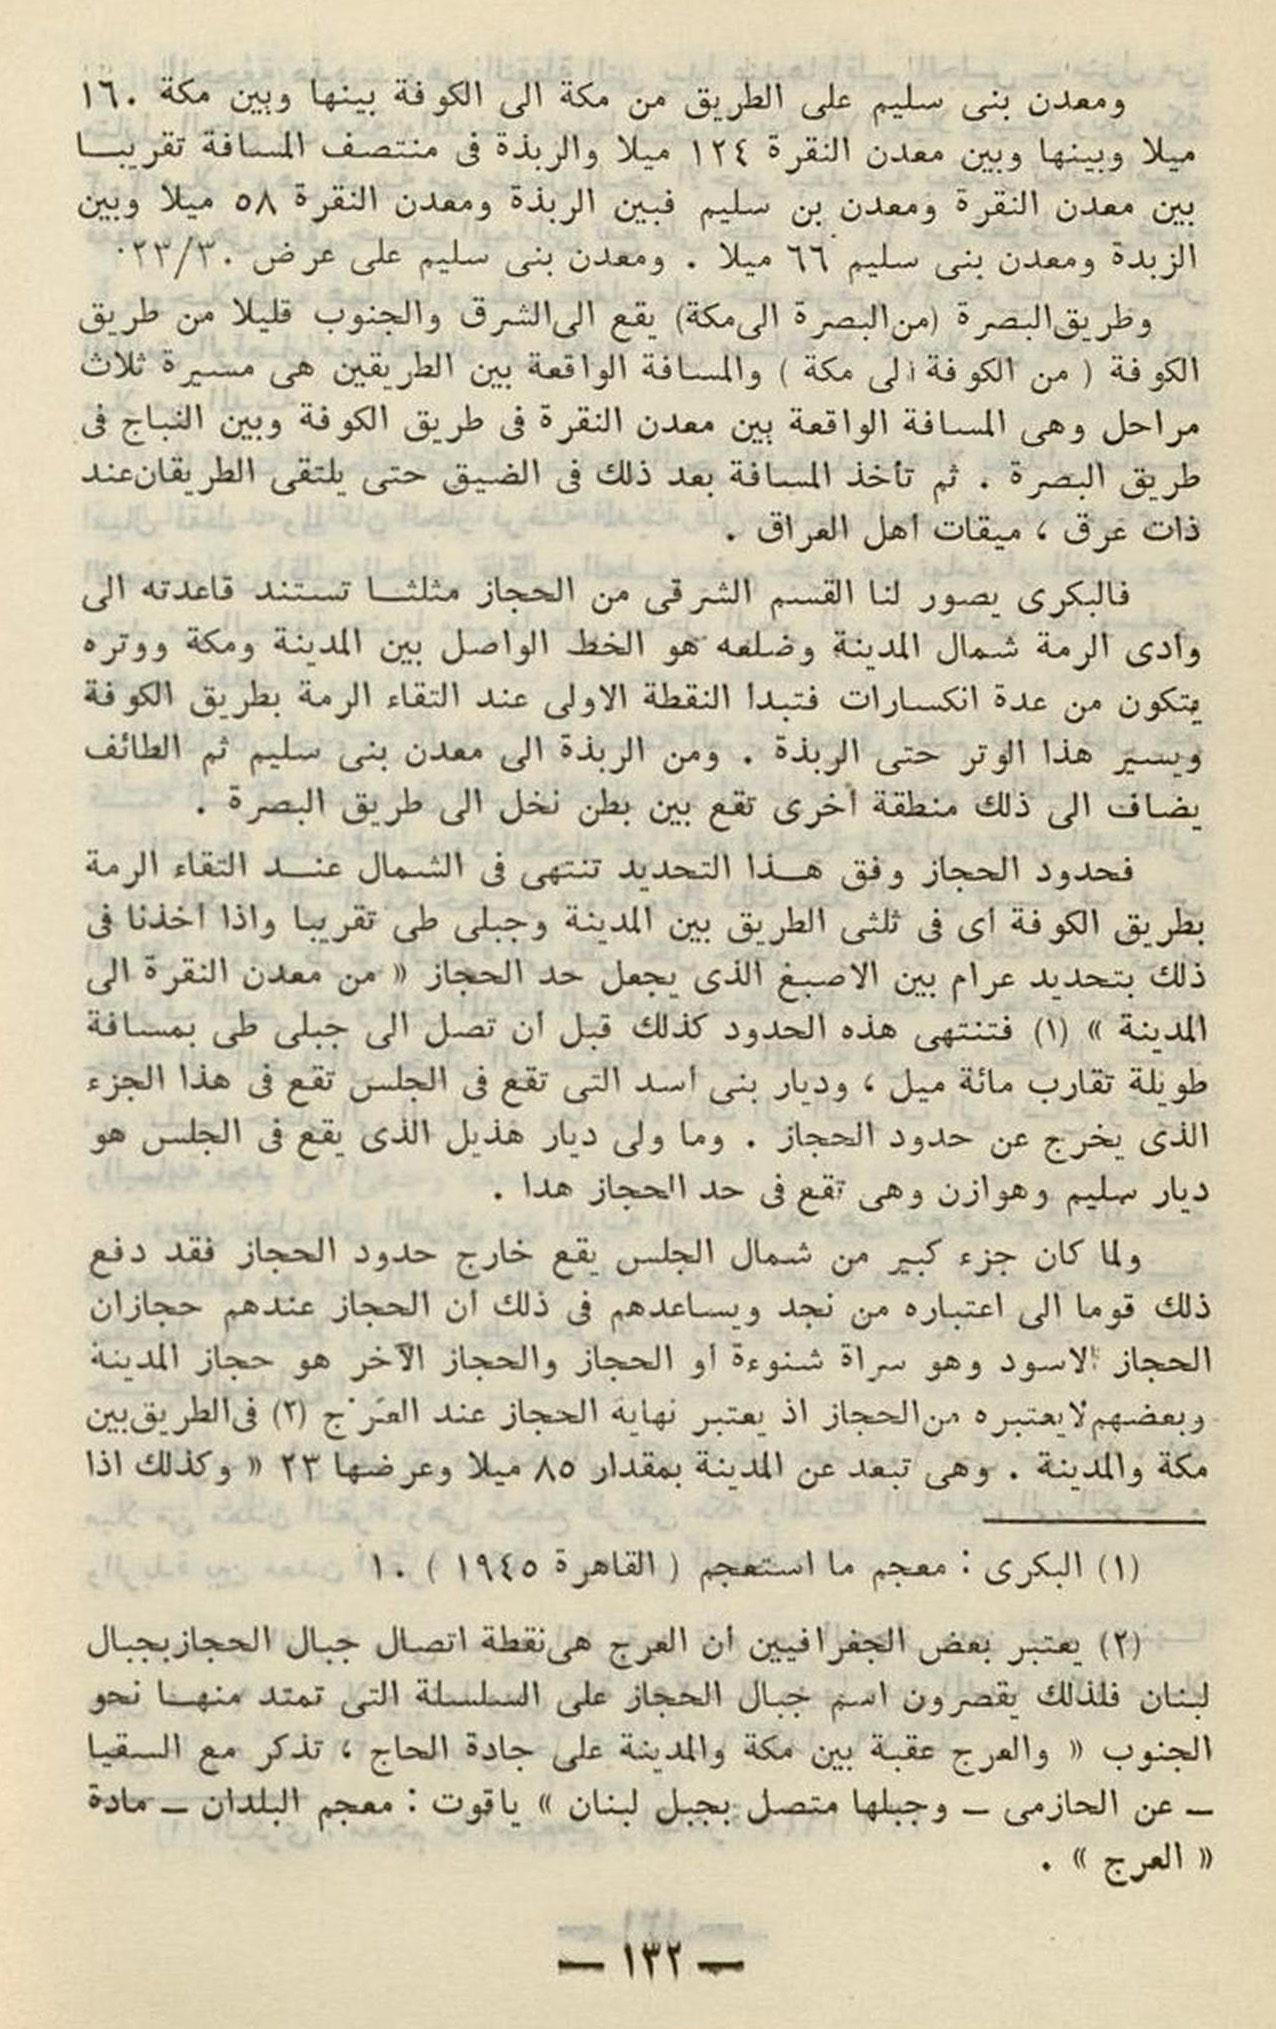 ومعدن بنى سليم على الطريق من مكة الى الكوفة بينها وبين مكة ١٦٠
ميلا وبينها وبين معدن النقرة ١٢٤ ميلا والربذة فى منتصف المسافة تقريبـا
بين معدن النقرة ومعدن بن سليم فبين الربذة ومعدن النقرة ٥٨ ميلا وبين
الزبدة ومعدن بنى سليم ٦٦ ميلا . ومعدن بنى سليم على عرض ٢٣/٣٠ .
وطريق البصرة (من البصرة الى مكة) يقع الى الشرق والجنوب قليلا من طريق
الكوفة ( من الكوفة الى مكة ) والمسافة الواقعة بين الطريقين هى مسيرة ثلاث
مراحل وهى المسافة الواقعة بين معدن النقرة فى طريق الكوفة وبين النباج فى
طريق البصرة . ثم تأخذ المسافة بعد ذلك فى الضيق حتى يلتقى الطريقان عند
ذات عرق ، ميقات أهل العراق .
فالبكرى يصور لنا القسم الشرقى من الحجاز مثلثـا تستند قاعدته الى
وادى الرمة شمال المدينة وضلعه هو الخط الواصل بين المدينة ومكة ووتره
يتكون من عدة انكسارات فتبدأ النقطة الاولى عند التقاء الرمة بطريق الكوفة
ويسير هذا الوتر حتى الربذة . ومن الربذة الى معدن بنى سليم ثم الطائف
يضاف الى ذلك منطقة أخرى تقع بين بطن نخل الى طريق البصرة .
فحدود الحجاز وفق هـذا التحديد تنتهى فى الشمال عنـد التقاء الرمة
بطريق الكوفة أى فى ثلثى الطريق بين المدينة وجبلى طى تقريبا واذا أخذنا فى
ذلك بتحديد عرام بين الاصبغ الذى يجعل حد الحجاز « من معدن النقرة الى
المدينة » (١) فتنتهى هذه الحدود كذلك قبل أن تصل الى جبلى طى بمسافة
طويلة تقارب مائة ميل ، وديار بنى أسد التى تقع فى الجلس تقع فى هذا الجزء
الذى يخرج عن حدود الحجاز . وما ولى ديار هذيل الذى يقع فى الجلس هو
ديار سليم وهوازن وهى تقع فى حد الحجاز هذا .
ولما كان جزء كبير من شمال الجلس يقع خارج حدود الحجاز فقد دفع
ذلك قوما الى اعتباره من نجد ويساعدهم فى ذلك أن الحجاز عندهم حجازان
الحجاز الاسود وهو سراة شنوءة أو الحجاز والحجاز الآخر هو حجاز المدينة
وبعضهم لا يعتبره من الحجاز اذ يعتبر نهاية الحجاز عند العَرْج (٢) فى الطريق بين
مكة والمدينة . وهى تبعد عن المدينة بمقدار ٨٥ ميلا وعرضها ٢٣ « وكذلك اذا
(١) البكرى : معجم ما استعجم ( القاهرة ١٩٤٥ ) ١٠
(٢) يعتبر بعض الجغرافيين أن العرج هى نقطة اتصال جبال الحجاز بجبال
لبنان فلذلك يقصرون اسم جبال الحجاز على السلسلة التى تمتد منهـا نحو
الجنوب « والعرج عقبة بين مكة والمدينة على جادة الحاج ، تذكر مع السقيا
ــ عن الحازمى ــ وجبلها متصل بجبل لبنان » ياقوت : معجم البلدان ــ مادة
« العرج » .
— ١٣٢ —